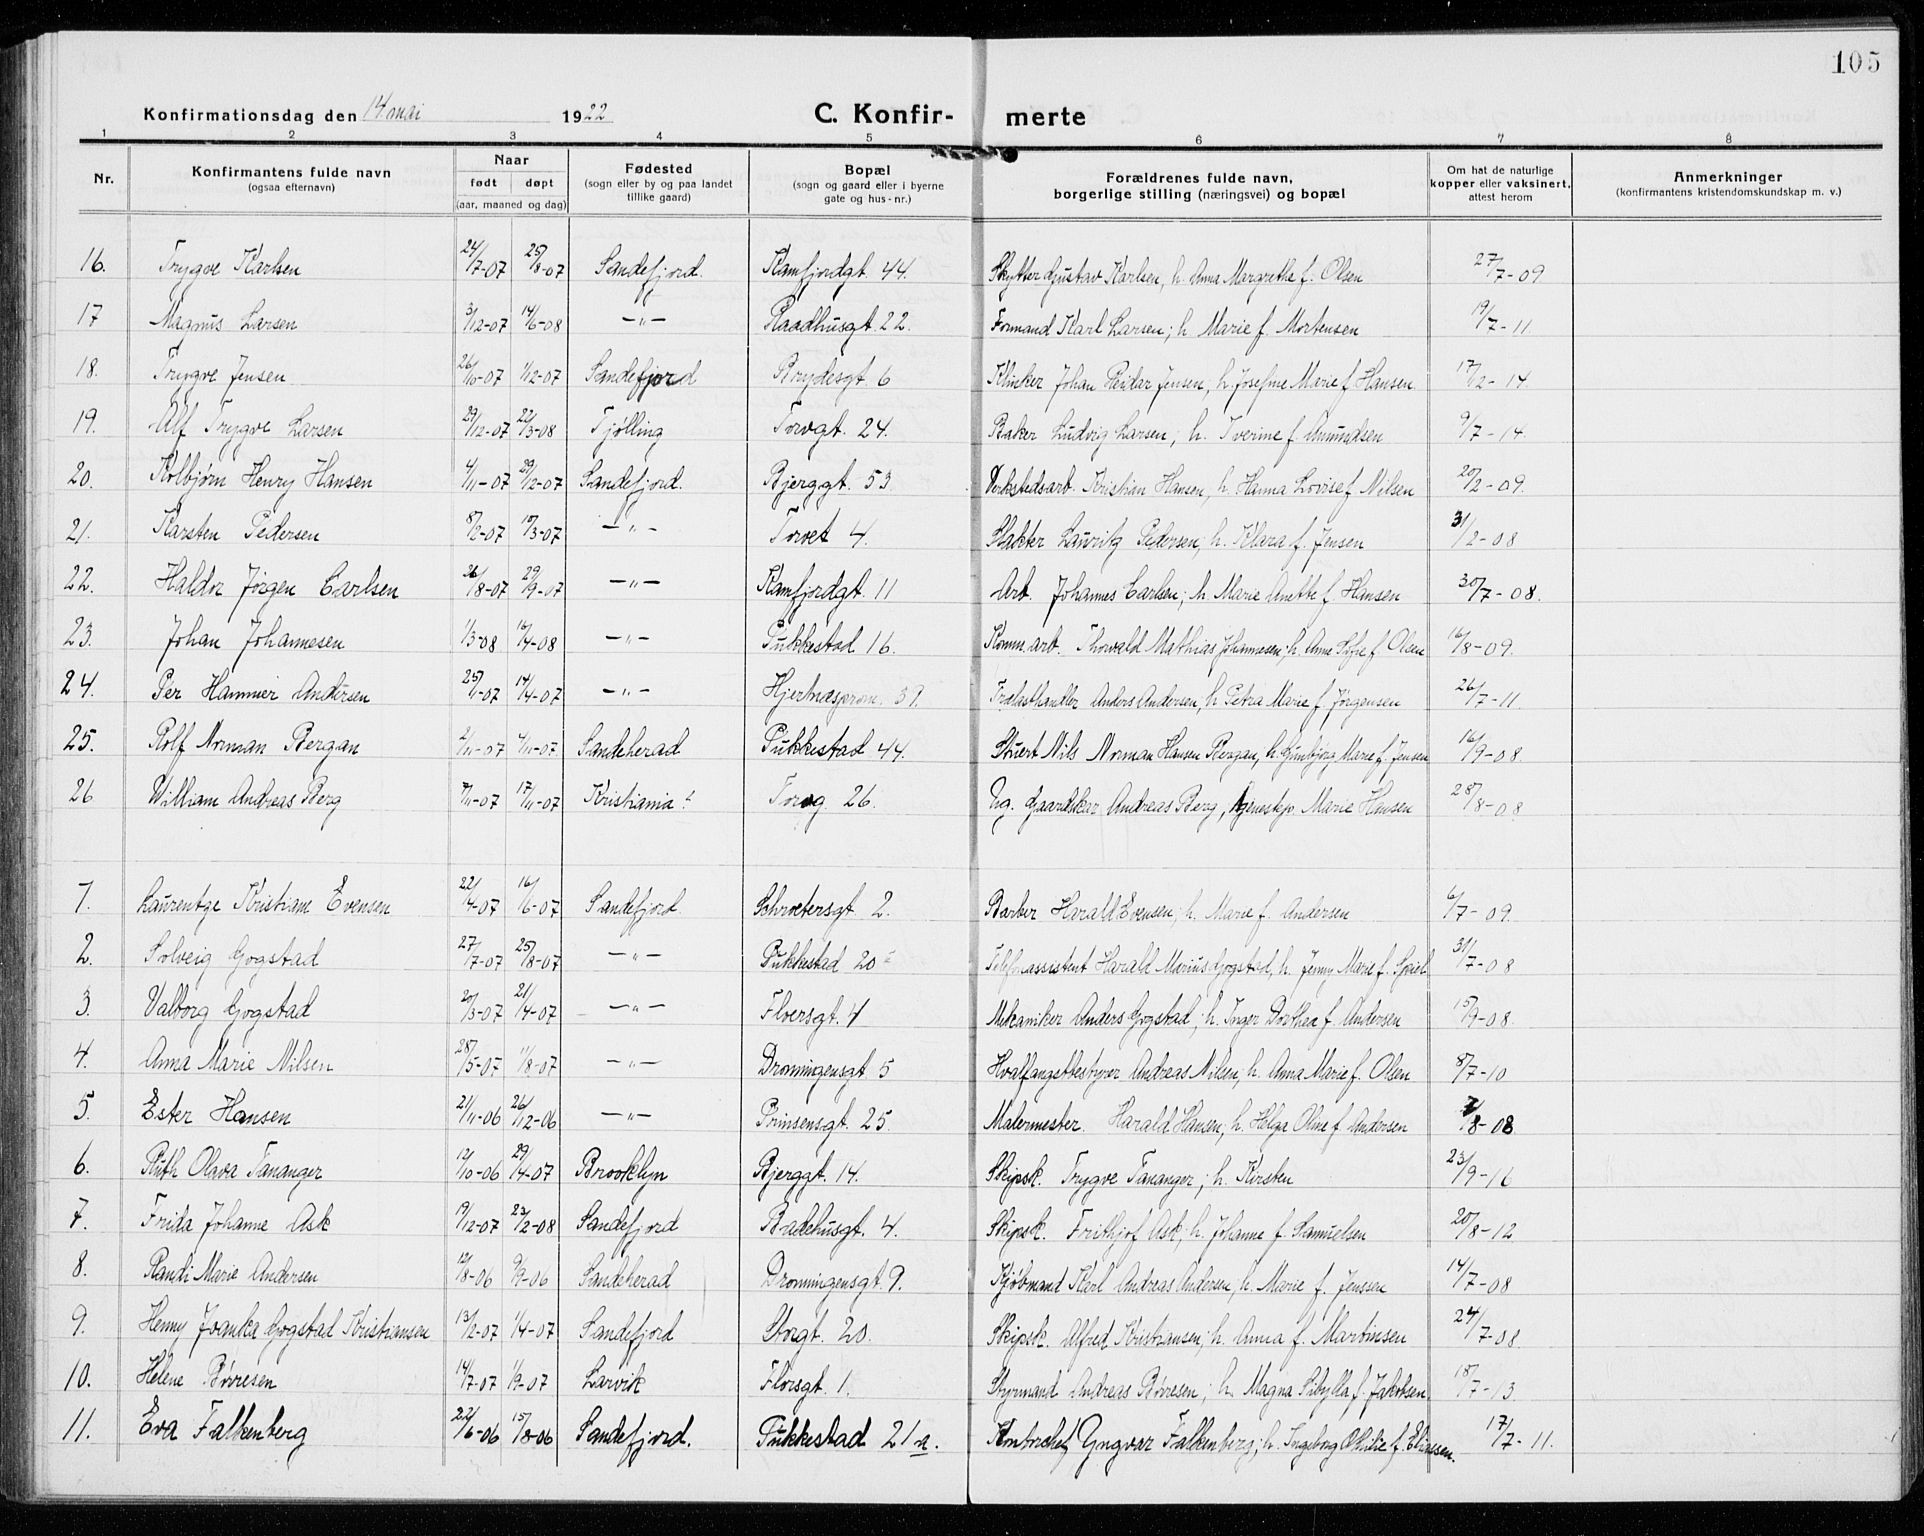 105
Konfirmationsdag den 14. mai 1922 C. Konfir- merte
1 2 3 4 5 6 7 8
Nr. Konfirmantens fulde navn (ogsaa efternavn) Naar født døpt (aar, maaned og dag) Fødested (sogn eller by og paa landet tillike gaard) Bopæl (sogn og gaard eller i byerne gate og hus-nr.) Forældrenes fulde navn, borgerlige stilling (næringsvei) og bopæl Om hat de naturlige kopper eller vaksinert, attest herom Anmerkninger (konfirmantens kristendomskundskap m. v.)
16. Trygve Karlsen 24/7-07 25/8-07 Sandefjord. Kamfjordgt. 44. Skytter Gustav Karlsen, h. Anna Margrethe f. Olsen 27/7-09.
17 Magnus Larsen 3/12-07 14/6-08 —„— Raadhusgt. 22. Formand Karl Larsen; h. Marie f. Mortensen 19/7-11
18. Trygve Jensen 26/10-07 1/12-07 Sandefjord Brydesgt. 6 Klinker Johan Peidar Jensen, h. Josefine Marie f. Hansen 17/12-14
19. Alf Trygve Larsen 29/12-07 22/3-08 Tjølling Torvgt. 24. Baker Ludvig Larsen; h. Iverine f. Amundsen 9/7-14.
20. Kolbjørn Henry Hansen 4/11-07 29/12-07 Sandefjord. Bjerggt. 53 Verkstedsarb. Kristian Hansen, h. Hanna Lovise f. Nilsen 20/2-09.
21. Karsten Pedersen 8/2-07 10/3-07 —„— Torvet 4. Slakter Lauritz Pedersen; h. Klara f. Jensen 31/2-08
22. Haldor Jørgen Carlsen 26/8-07 29/9-07 —„— Kamfjordgt. 11 Arb. Johannes Carlsen; h. Marie Anette f. Hansen 30/7-08.
23. Johan Johannesen 1/3-08 16/4-08 —„— Pukkestad 16. Komm. arb. Thorvald Mathias Johannesen, h. Anne Sofie f. Olsen 16/8-09.
24. Per Hammer Andersen 25/1-07 14/4-07 —„— Hjertnæsprom. 37. Trælasthandler Anders Andersen, h. Petra Marie f. Jørgensen 26/7-11.
25. Rolf Norman Bergan 2/11-07 4/11-07 Sandeherad Pukkestad 44. Stuert Nils Norman Hansen Bergan, h. Gunbjørg Marie f. Jensen 16/9-08.
26 William Andreas Berg 7/11-07 17/11-07 Kristiania Torvg. 26. Ug. Gaardskar Andreas Berg, tjenestep. Marie Hansen 28/8-08
1. Laurentze Kristiane Evensen 22/4-07 16/6-07 Sandefjord. Schrøtersgt. 2. Barber Harald Evensen; h. Marie f. Andersen 6/7-09.
2. Solveig Gogstad 27/7-07 25/8-07 —„— Pukkestad 20 Telefonassistent Harald Marius Gogstad, h. Jenny Marie f. 31/7-08
3. Valborg Gogstad 20/3-07 21/4-07 —„— Floersgt. 4 Mekaniker Anders Gogstad; h. Inger Dorthea f. Andersen 15/9-08.
4. Anna Marie Nilsen 28/5-07 11/8-07 —„— Dronningensgt 5 Hvalfangstbestyrer Andreas Nilsen, h. Anna Marie f. Olsen 8/7-10
5. Ester Hansen 21/11-06 26/12-06 —„— Prinsensgt. 25. Malermester. Harald Hansen; h. Helga Oline f. Andersen 7/8-08
6. Ruth Olava Tananger 12/10-06 29/4-07 Brooklyn Bjerggt. 14. Skipsk. Trygve Tananger; h. Kirsten 23/9-16
7. Frida Johanne Ask 19/12-07 23/2-08 Sandefjord Badehusgt. 4. Skipsk. Frithjof Ask; h. Johanne f. Samuelsen 20/8-12
8. Randi Marie Andersen 12/8-06 9/9-06 Sandeherad Dronningensgt. 9. Kjøbmand Karl Andreas Andersen, h. Marie f. Jenssen 14/7-08
9. Henny Ivanka Gogstad Kristiansen 13/2-07 1/4-07 Sandefjord Storgt. 20. Skipsk. Alfred Kristiansen; h. Anna f. Martinsen 24/7-08.
10. Helene Børresen 14/7-07 1/9-07 Larvik Florsgt. 1. Styrmand Andreas Børresen; h. Magna Sibylla f. Jakobsen 18/7-13
11. Eva Falkenberg 22/6-06 15/8-06 Sandefjord. Pukkestad 21 a. Kontorchef Yngvar Falkenberg; h. Ingeborg Othilie f. Eliassen. 17/7-11.